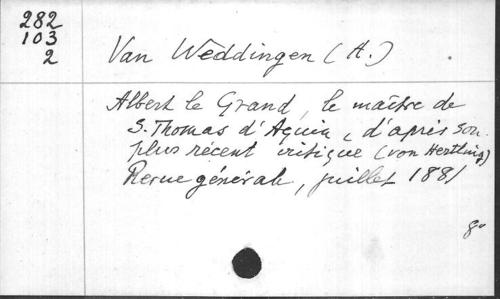 282
103
2
Van Weddingen (A.)
Albert le Grand, le maître de
S. Thomas d'Aquin, d'après son
plus récent critique (von Hertling)
Revue générale, juillet 1881
8°